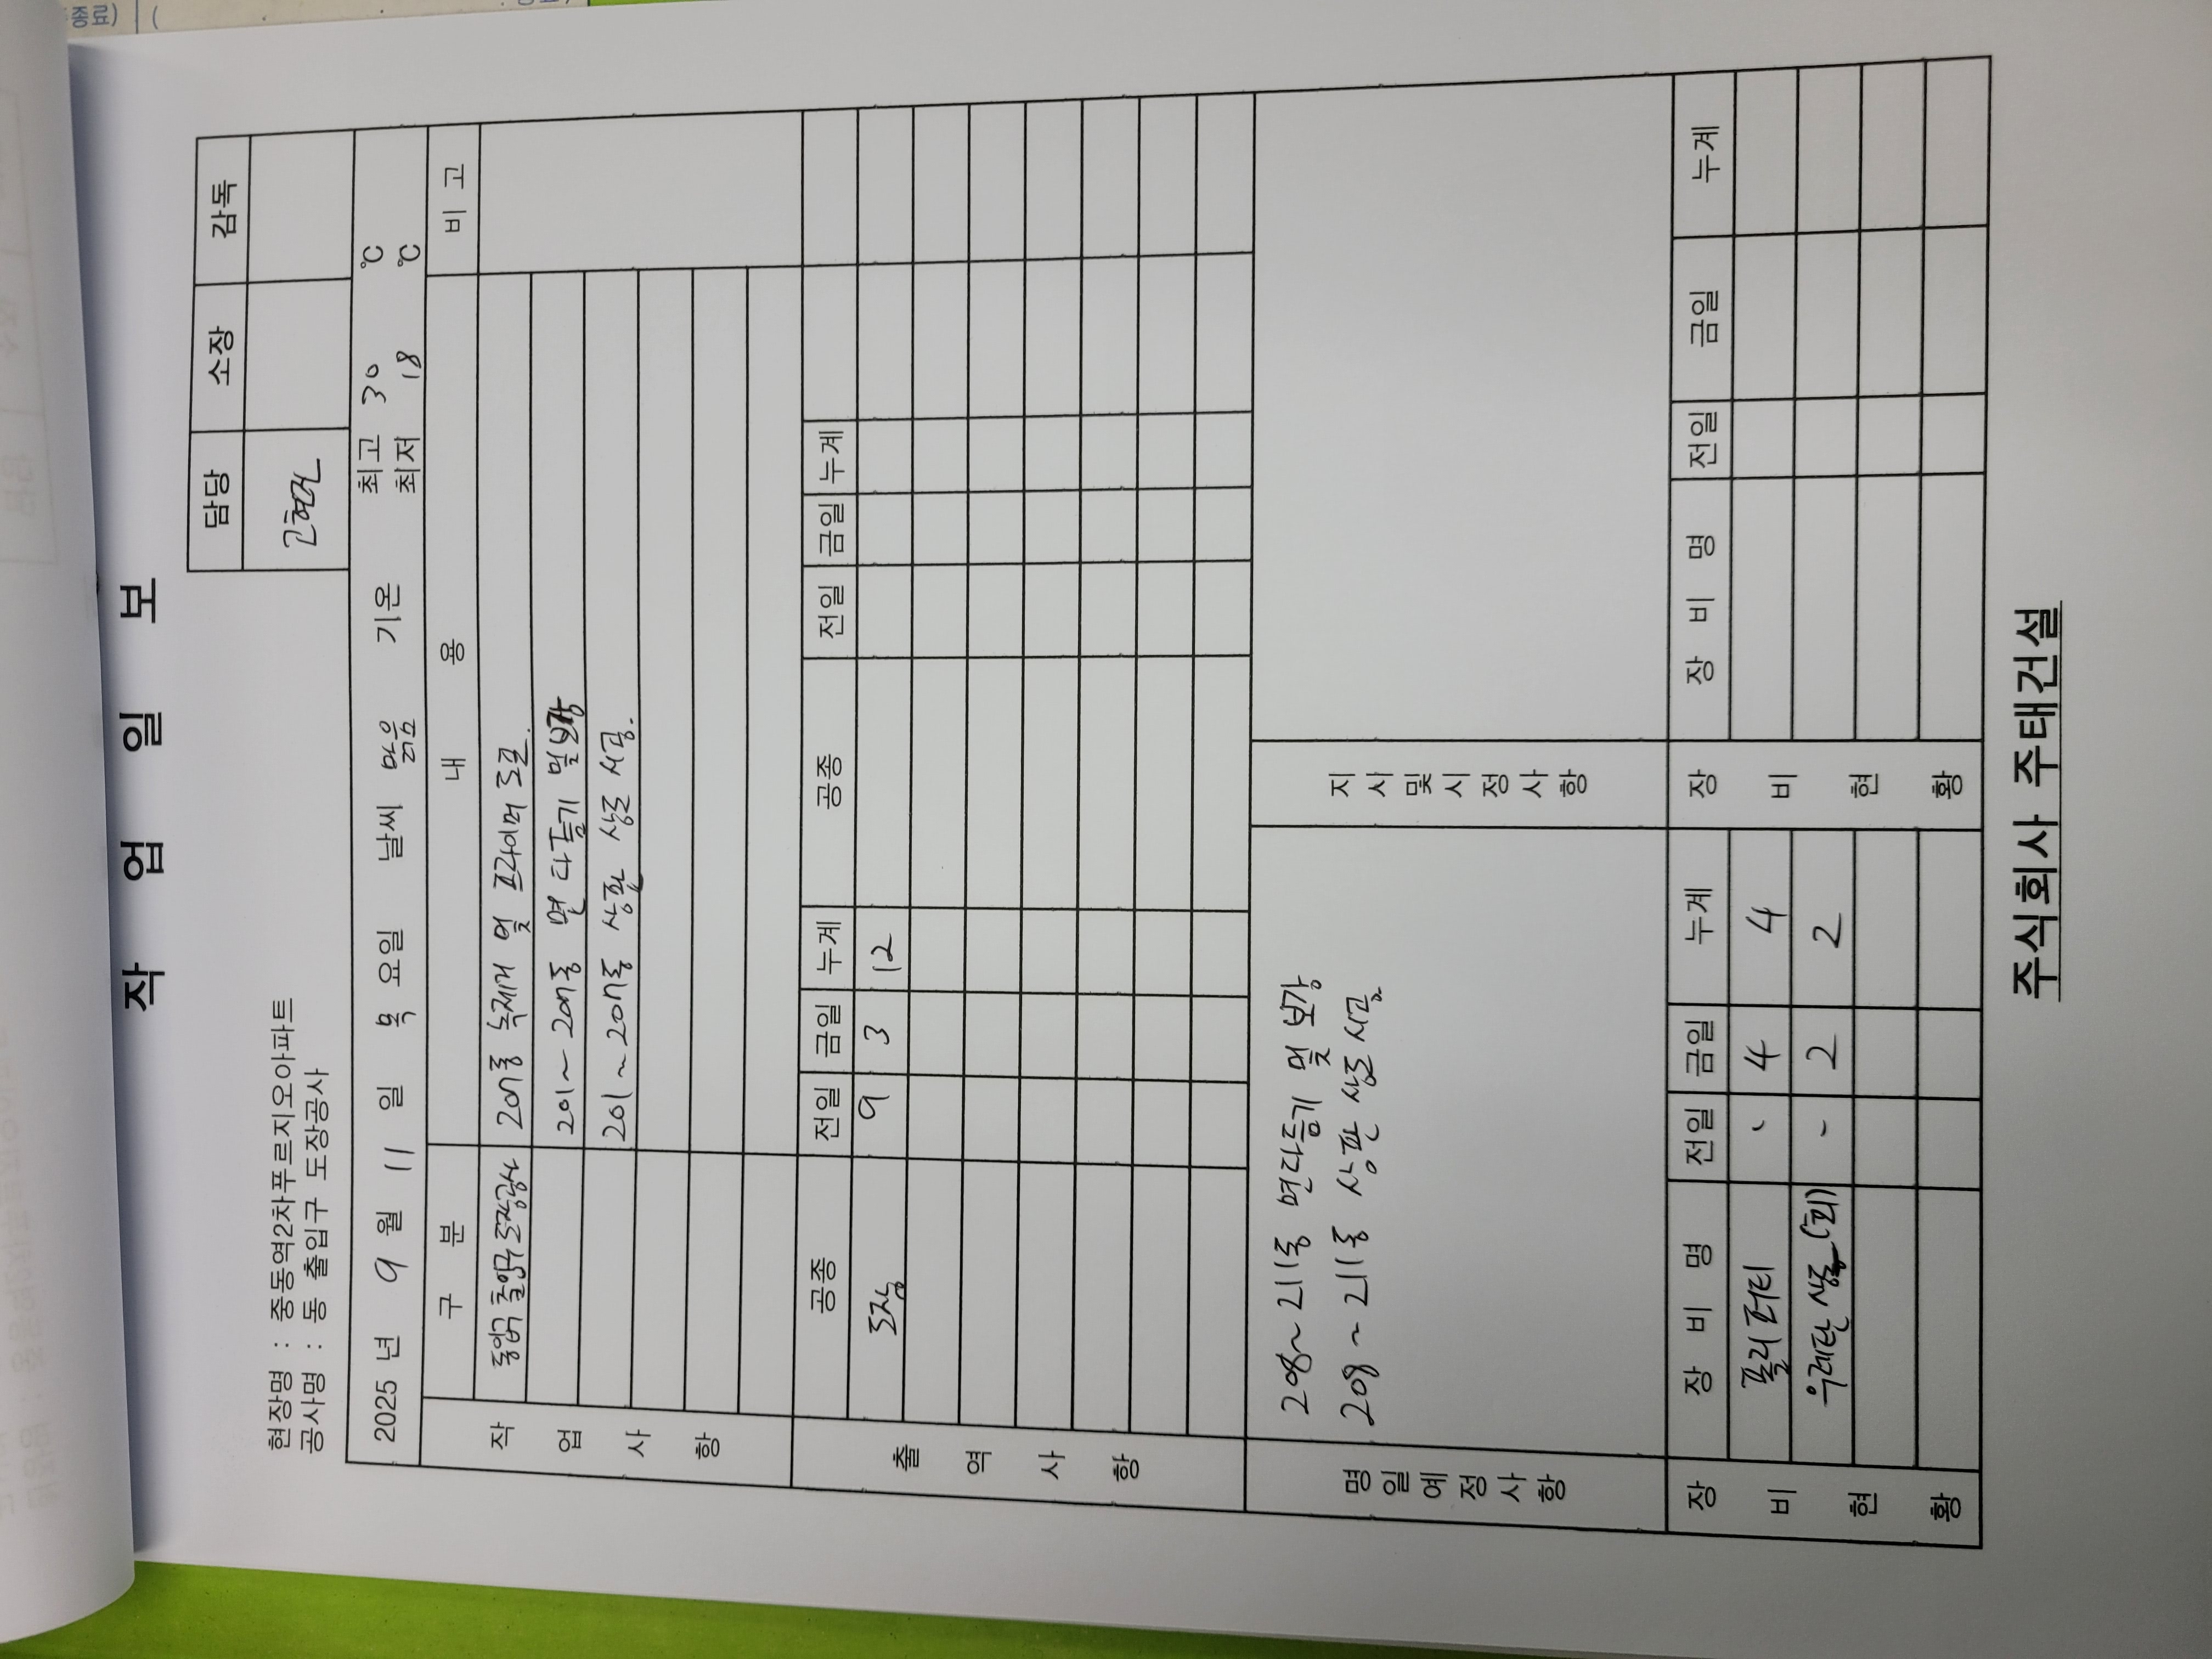 작 업 일 보
담당 소장 감독
현장명 : 중동역2차푸르지오아파트
공사명 : 동 출입구 도장공사
2025 년 9 월 11 일 목 요일 날씨 맑음 기온 최고 30 ℃
최저 18 ℃
작업사항
구 분 내 용 비 고
동입구 출입구 도장공사 207동 녹제거 및 프라이머 도포.
201~207동 면 다듬기 및 보강
201~207동 상판 상도 시공.
출역사항
공종 전일 금일 누계 공종 전일 금일 누계
도장 9 3 12
명일예정사항
208~211동 면다듬기 및 보강
208~211동 상판 상도 시공
지시및시정사항
장비현황
장 비 명 전일 금일 누계
폴리퍼티 - 4 4
우레탄 상도(회) - 2 2
장비현황
장 비 명 전일 금일 누계
주식회사 주태건설